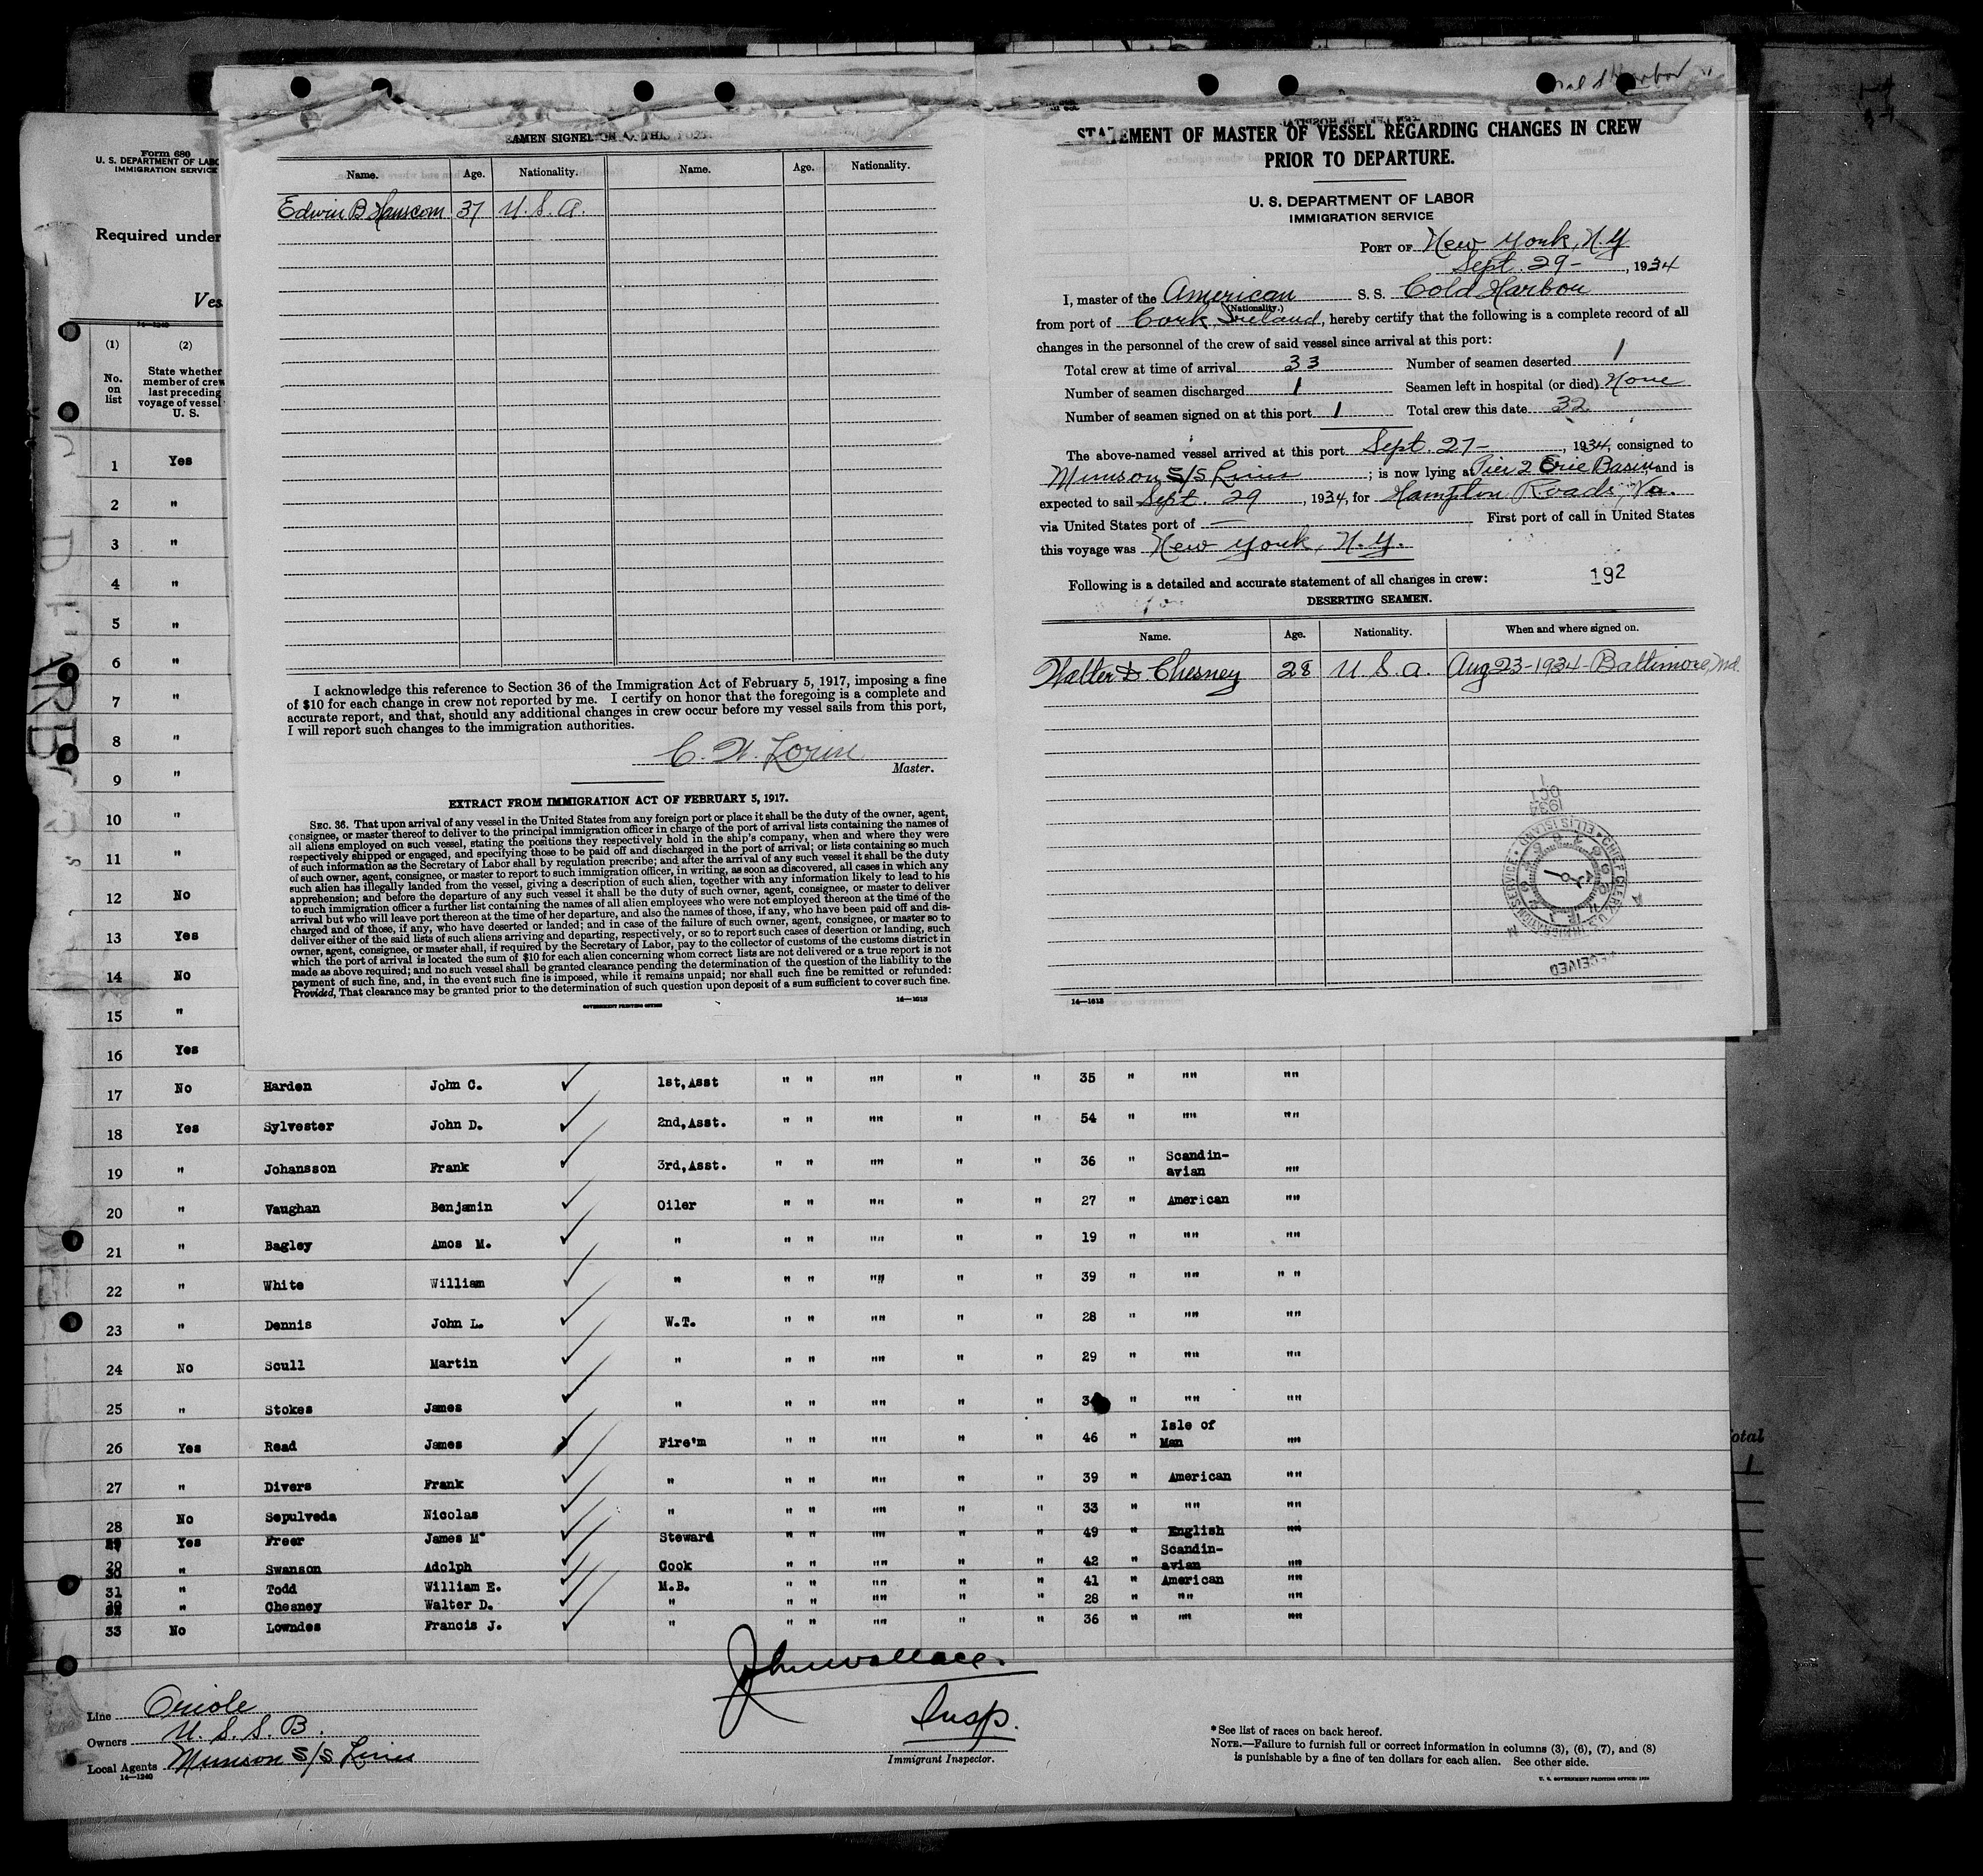 Form 680
U. S. DEPARTMENT OF LABO
IMMIGRATION SERVICE
Required under
Ves
14—1240
(1) (2)
No. on list
State whether member of crew last preceding voyage of vessel U. S.
1 Yes
2 "
3 "
4 "
5 "
6 "
7 "
8 "
9 "
10 "
11 "
12 No
13 Yes
14 No
15 "
16 Yes
EAMEN SIGNED ON AT THIS PORT.
Name. Age. Nationality. Name. Age. Nationality.
Edwin B Hanscom 37 U. S. A.
I acknowledge this reference to Section 36 of the Immigration Act of February 5, 1917, imposing a fine
of $10 for each change in crew not reported by me. I certify on honor that the foregoing is a complete and
accurate report, and that, should any additional changes in crew occur before my vessel sails from this port,
I will report such changes to the immigration authorities.
C. W.
Master.
EXTRACT FROM IMMIGRATION ACT OF FEBRUARY 5, 1917.
SEC. 36. That upon arrival of any vessel in the United States from any foreign port or place it shall be the duty of the owner, agent,
consignee, or master thereof to deliver to the principal immigration officer in charge of the port of arrival lists containing the names of
all aliens employed on such vessel, stating the positions they respectively hold in the ship's company, when and where they were
respectively shipped or engaged, and specifying those to be paid off and discharged in the port of arrival; or lists containing so much
of such information as the Secretary of Labor shall by regulation prescribe; and after the arrival of any such vessel it shall be the duty
of such owner, agent, consignee, or master to report to such immigration officer, in writing, as soon as discovered, all cases in which any
such alien has illegally landed from the vessel, giving a description of such alien, together with any information likely to lead to his
apprehension; and before the departure of any such vessel it shall be the duty of such owner, agent, consignee, or master to deliver
to such immigration officer a further list containing the names of all alien employees who were not employed thereon at the time of the
arrival but who will leave port thereon at the time of her departure, and also the names of those, if any, who have been paid off and dis-
charged and of those, if any, who have deserted or landed; and in case of the failure of such owner, agent, consignee, or master so to
deliver either of the said lists of such aliens arriving and departing, respectively, or so to report such cases of desertion or landing, such
owner, agent, consignee, or master shall, if required by the Secretary of Labor, pay to the collector of customs of the customs district in
which the port of arrival is located the sum of $10 for each alien concerning whom correct lists are not delivered or a true report is not
made as above required; and no such vessel shall be granted clearance pending the determination of the question of the liability to the
payment of such fine, and, in the event such fine is imposed, while it remains unpaid; nor shall such fine be remitted or refunded:
Provided, That clearance may be granted prior to the determination of such question upon deposit of a sum sufficient to cover such fine.
GOVERNMENT PRINTING OFFICE 14—1613
STATEMENT OF MASTER OF VESSEL REGARDING CHANGES IN CREW
PRIOR TO DEPARTURE.
U. S. DEPARTMENT OF LABOR
IMMIGRATION SERVICE
PORT OF New York, N.Y
Sept. 29 - , 1934
I, master of the American S. S. Cold Harbor
(Nationality.)
from port of Cork, Ireland, hereby certify that the following is a complete record of all
changes in the personnel of the crew of said vessel since arrival at this port:
Total crew at time of arrival 33 Number of seamen deserted 1
Number of seamen discharged 1 Seamen left in hospital (or died) None
Number of seamen signed on at this port 1 Total crew this date 32
The above-named vessel arrived at this port Sept. 27 - , 1934, consigned to
Munson S/S Lines ; is now lying at Pier 2 Erie Basin, and is
expected to sail Sept. 29 , 1934, for Hampton Roads, Va.
via United States port of — First port of call in United States
this voyage was New York, N.Y.
Following is a detailed and accurate statement of all changes in crew: 192
DESERTING SEAMEN.
Name. Age. Nationality. When and where signed on.
Walter D. Chesney 28 U. S. A. Aug 23-1934 - Baltimore, Md.
1934 OCT 1
CHIEF CLERK U. S. IMMIGRATION SERVICE • ELLIS ISLAND
RECEIVED
14—1613
17 No Harden John C. ✓ 1st, Asst " " "" " " 35 " "" ""
18 Yes Sylvester John D. ✓ 2nd, Asst. " " "" " " 54 " "" ""
19 " Johansson Frank ✓ 3rd, Asst. " " "" " " 36 " Scandin-avian ""
20 " Vaughan Benjamin ✓ Oiler " " "" " " 27 " American ""
21 " Bagley Amos M. ✓ " " " "" " " 19 " "" ""
22 " White William ✓ " " " "" " " 39 " "" " "
23 " Dennis John L. ✓ W.T. " " "" " " 28 " "" ""
24 No Scull Martin ✓ " " " "" " " 29 " "" ""
25 " Stokes James ✓ " " " "" " " " "" ""
26 Yes Read James ✓ Fire'm " " "" " " 46 " Isle of Man ""
27 " Divers Frank ✓ " " " "" " " 39 " American ""
28 No Sepulveda Nicolas ✓ " " " "" " " 33 " "" ""
29 Yes Freer James M" ✓ Steward " " "" " " 49 " English ""
30 " Swanson Adolph ✓ Cook " " "" " " 42 " Scandin-avian ""
31 " Todd William E. ✓ M.B. " " "" " " 41 " American ""
32 " Chesney Walter D. ✓ " " " "" " " 28 " "" ""
33 No Lowndes Francis J. ✓ " " " "" " " 36 " "" ""
otal
1
John Wallace.
Insp.
Immigrant Inspector.
Line Oriole
Owners U. S. S. B.
Local Agents Munson S/S Lines
14—1240
* See list of races on back hereof.
NOTE.—Failure to furnish full or correct information in columns (3), (6), (7), and (8)
is punishable by a fine of ten dollars for each alien. See other side.
U. S. GOVERNMENT PRINTING OFFICE: